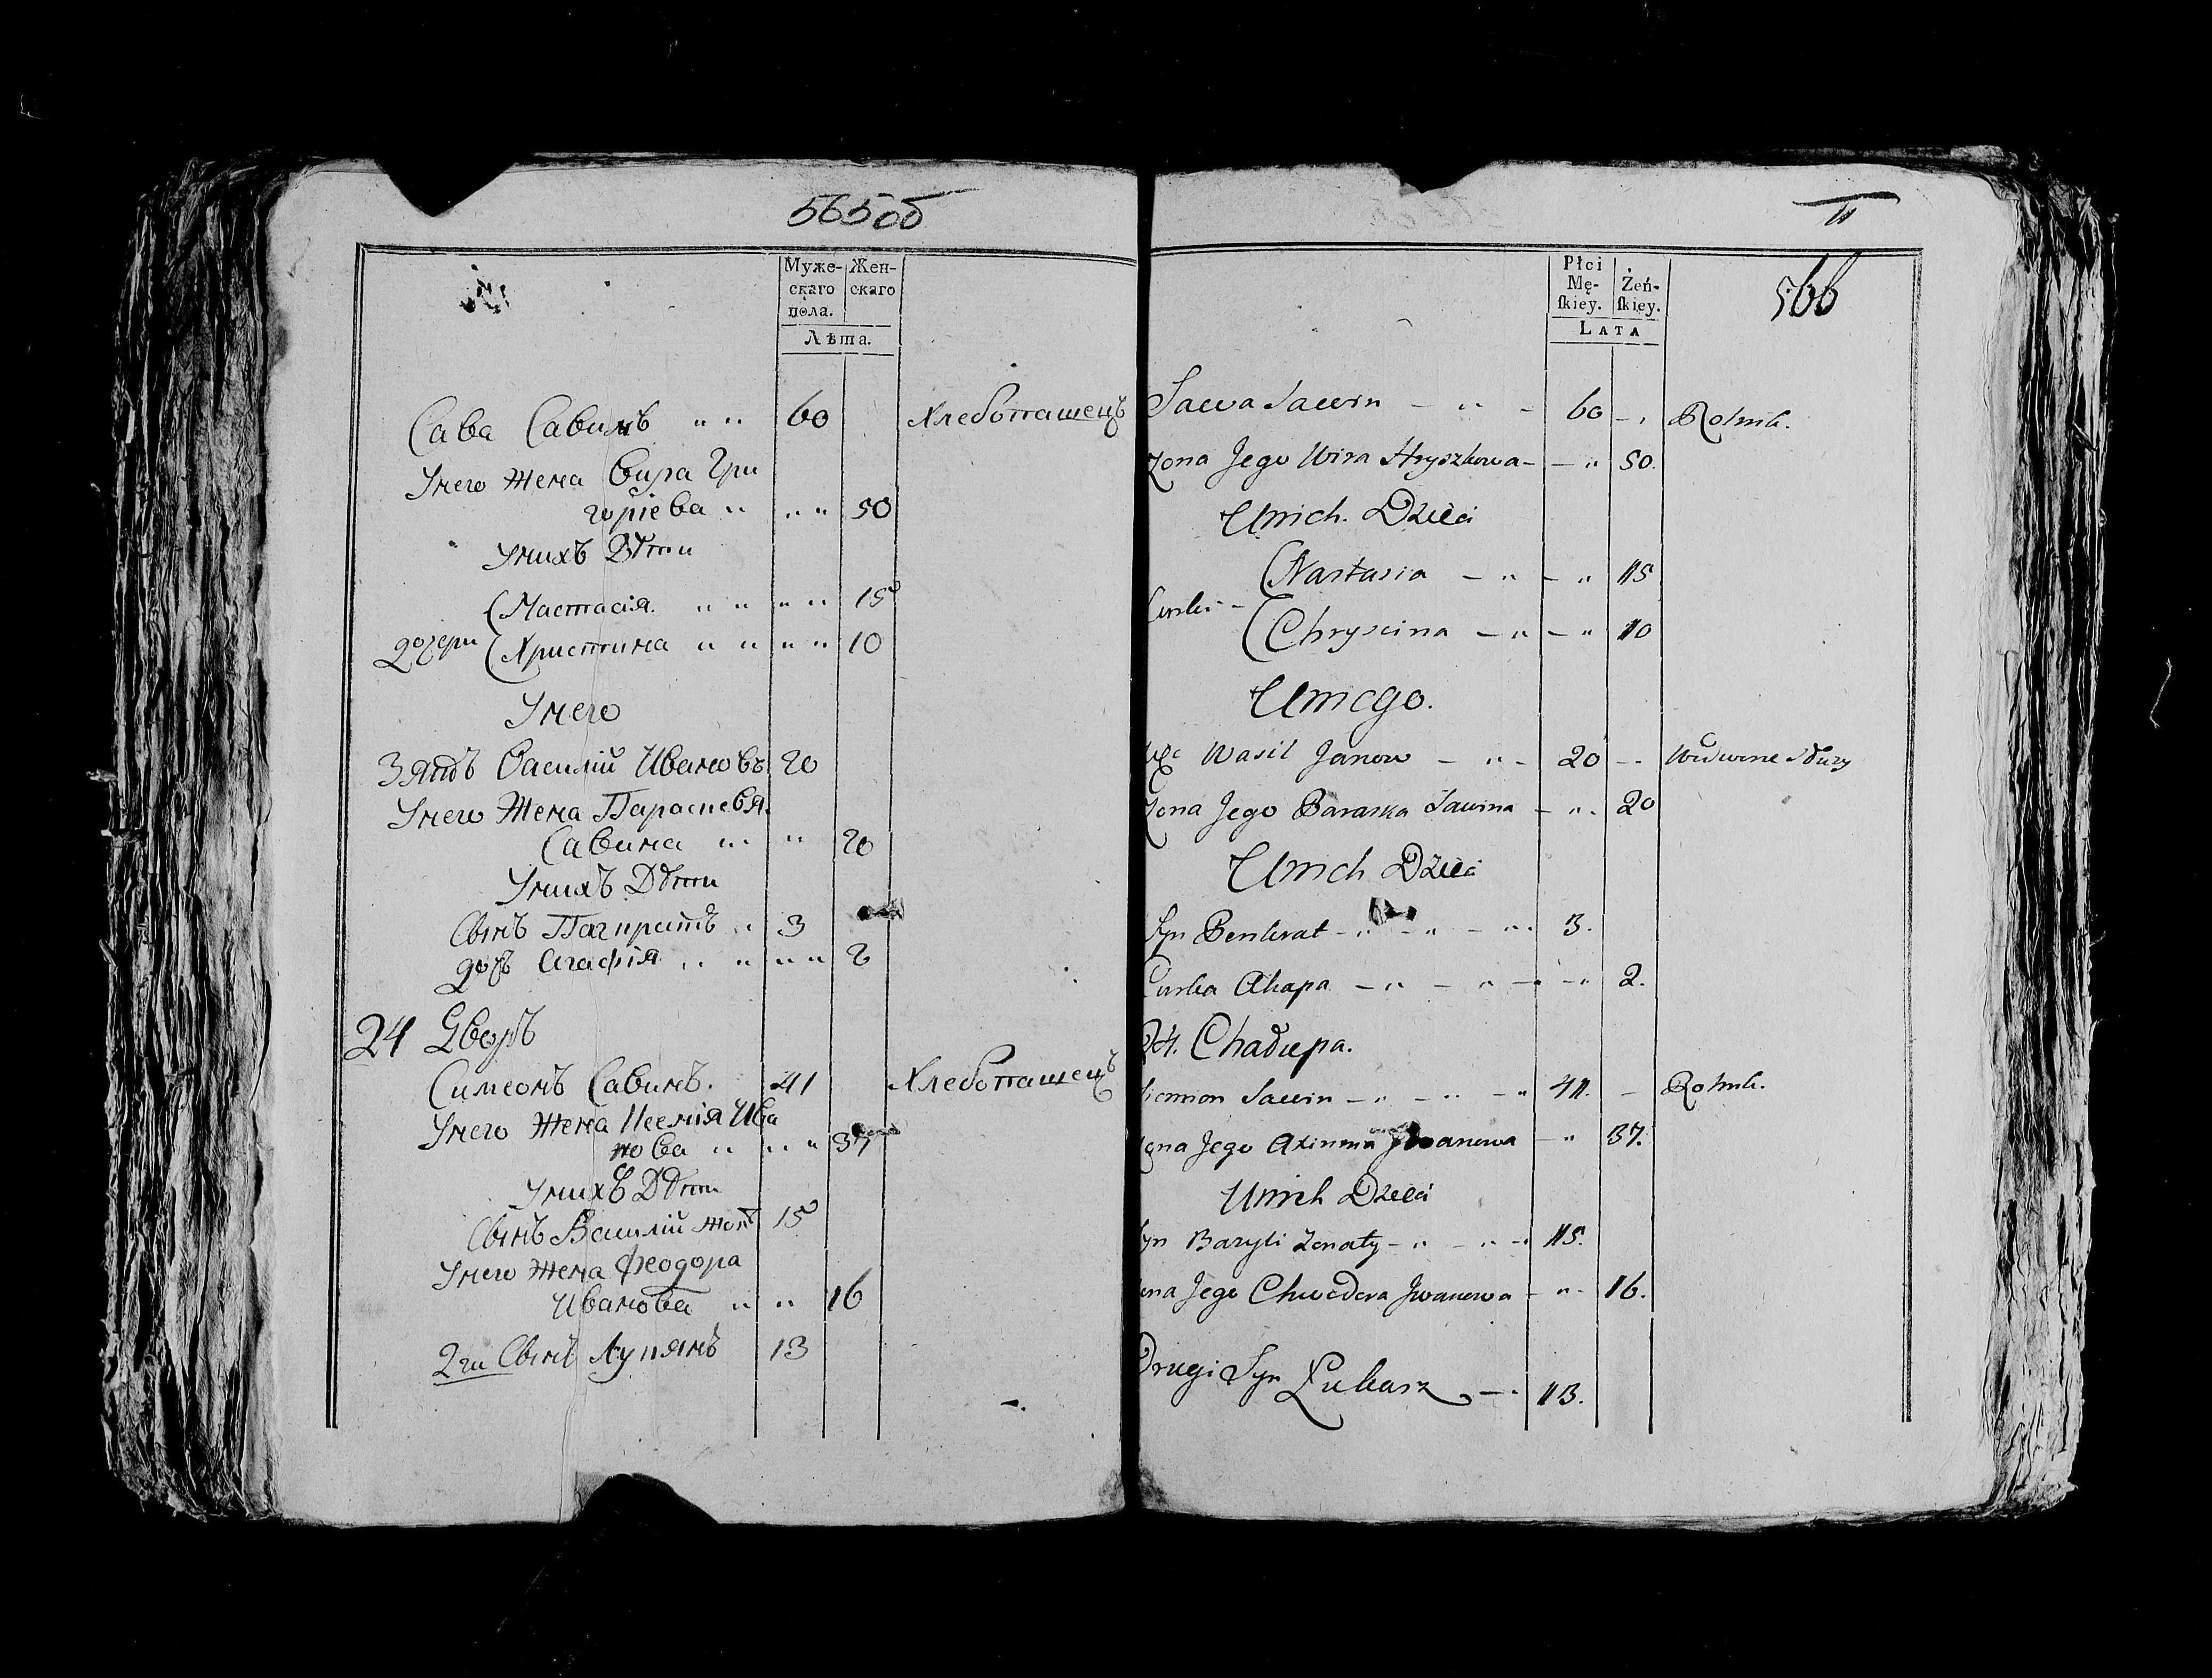 565об
Муже-
скаго
пола.
Жен-
скаго
Лѣта.
Сава Савинъ 60 Хлебопашецъ
Унего жена Вира Гри
горіева 50
Унихъ Дѣти
(Настасія. 15
дочери (Христина 10
Унего
Зять Василій Ивановъ 20
Унего Жена Параскевья
Савина 20
Унихъ Дѣти
Сынъ Панкратъ 3
дочь Агафія 2
24 Дворъ
Симеонъ Савинъ. 41 Хлебопашецъ
Унего жена Ива
нова 37
Унихъ Дѣти
Сынъ Василій жон 15
Унего жена Феодора
Иванова 16
2ги Сынъ Лукянъ 13
II
566
Płci
Mę-
ſkiey.
Żeń-
ſkiey.
LATA
Sawa Sawin 60 Rolnik.
Zona Jego Wira Hryszkowa 50.
Unich. Dzieci
(Nastasia 15
Curki (Chryscina 10
Uniego.
Wasil Janow 20
Zona Jego Paraska Sawina 20
Unich Dzieci
Syn Penkrat 3.
Curka Ahapa 2.
24. Chadupa.
Siemion Sawin 41. Rolnik.
Zona Jego Axinma Jwanowa 37.
Unich Dzieci
Syn Bazyli Zonaty 15.
Zona Jego Chwedora Jwanowa 16.
Drugi Syn Łukasz 13.